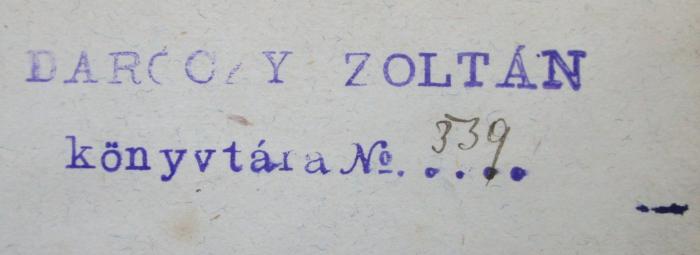 DARÓCZY ZOLTÁN
könyvtára №. 339